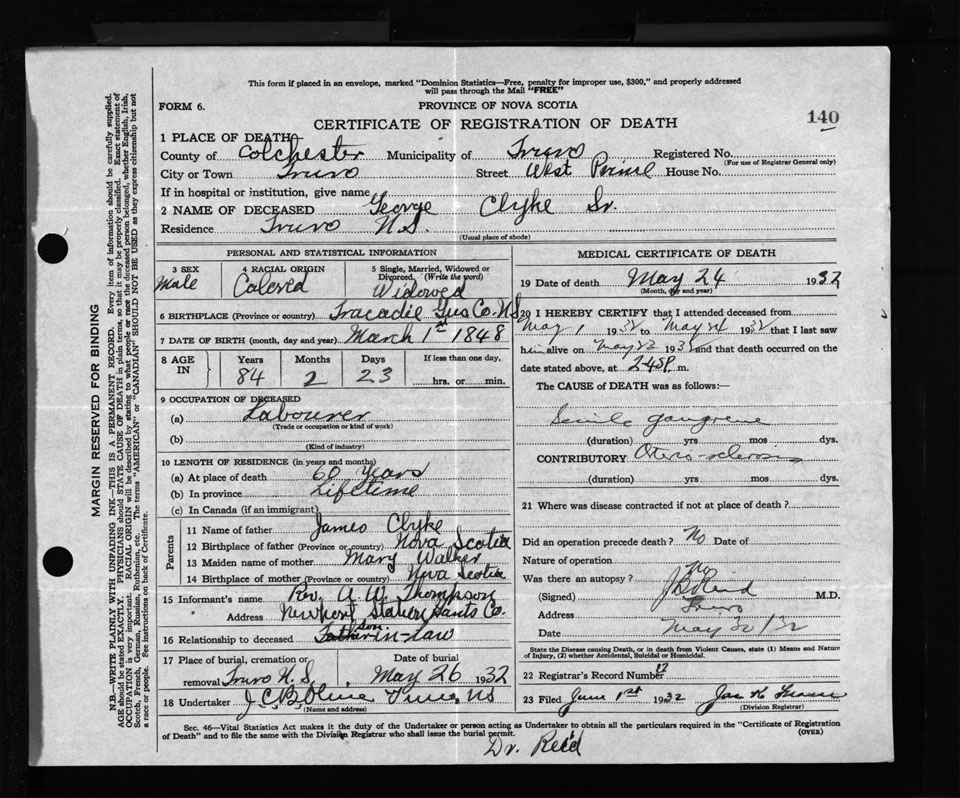 This form if placed in an envelope, marked "Dominion Statistics—Free, penalty for improper use, $300," and properly addressed
will pass through the Mail "FREE"
FORM 6.
PROVINCE OF NOVA SCOTIA
140
CERTIFICATE OF REGISTRATION OF DEATH
1 PLACE OF DEATH
County of Colchester Municipality of Truro Registered No.
(For use of Registrar General only)
City or Town Truro Street West Prince House No.
If in hospital or institution, give name
2 NAME OF DECEASED George Clyke Sr.
Residence Truro N.S.
(Usual place of abode)
PERSONAL AND STATISTICAL INFORMATION
3 SEX
Male
4 RACIAL ORIGIN
Colored
5 Single, Married, Widowed or
Divorced. (Write the word)
Widowed
6 BIRTHPLACE (Province or country) Tracadie Gus Co. N.S
7 DATE OF BIRTH (month, day and year) March 1st 1848
8 AGE
IN
Years Months Days If less than one day,
84 2 23 hrs. or min.
9 OCCUPATION OF DECEASED
(a) Labourer
(Trade or occupation or kind of work)
(b)
(Kind of industry)
10 LENGTH OF RESIDENCE (in years and months)
(a) At place of death 60 Years
(b) In province Lifetime
(c) In Canada (if an immigrant)
Parents
11 Name of father James Clyke
12 Birthplace of father (Province or country) Nova Scotia
13 Maiden name of mother Mary Walker
14 Birthplace of mother (Province or country) Nova Scotia
15 Informant's name Rev. A. W. Thompson
Address Newport Station Hants Co.
16 Relationship to deceased son in-law
17 Place of burial, cremation or Date of burial
removal Truro N.S. May 26 1932
18 Undertaker J.C.B. Olive Truro, NS
(Name and address)
MEDICAL CERTIFICATE OF DEATH
19 Date of death May 24 1932
(Month, day and year)
20 I HEREBY CERTIFY that I attended deceased from
May 1 1932 to May 24 1932 that I last saw
him alive on May 23 1932 and that death occurred on the
date stated above, at 2.45P. m.
The CAUSE of DEATH was as follows:
Senile gangrene
(duration) yrs mos dys.
CONTRIBUTORY
(duration) yrs mos dys.
21 Where was disease contracted if not at place of death?
Did an operation precede death? No Date of
Nature of operation
Was there an autopsy? No
(Signed) Reid M.D.
Address Truro
Date May 30/32
State the Disease causing Death, or in death from Violent Causes, state (1) Means and Nature
of Injury, (2) whether Accidental, Suicidal or Homicidal.
22 Registrar's Record Number
23 Filed June 1st 1932
(Division Registrar)
Sec. 46—Vital Statistics Act makes it the duty of the Undertaker or person acting as Undertaker to obtain all the particulars required in the "Certificate of Registration
of Death" and to file the same with the Division Registrar who shall issue the burial permit.
(OVER)
Dr. Reid
MARGIN RESERVED FOR BINDING
N.B.—WRITE PLAINLY WITH UNFADING INK—THIS IS A PERMANENT RECORD. Every item of information should be carefully supplied.
AGE should be stated EXACTLY. PHYSICIANS should STATE CAUSE OF DEATH in plain terms, so that it may be properly classified. Exact statement of
OCCUPATION is very important. RACIAL ORIGIN will be described by stating to what people or race the deceased person belonged, whether English, Irish,
Scotch, French, German, Russian, Ruthenian, etc. The terms "AMERICAN" or "CANADIAN" SHOULD NOT BE USED as they express citizenship but not
a race or people. See instructions on back of Certificate.